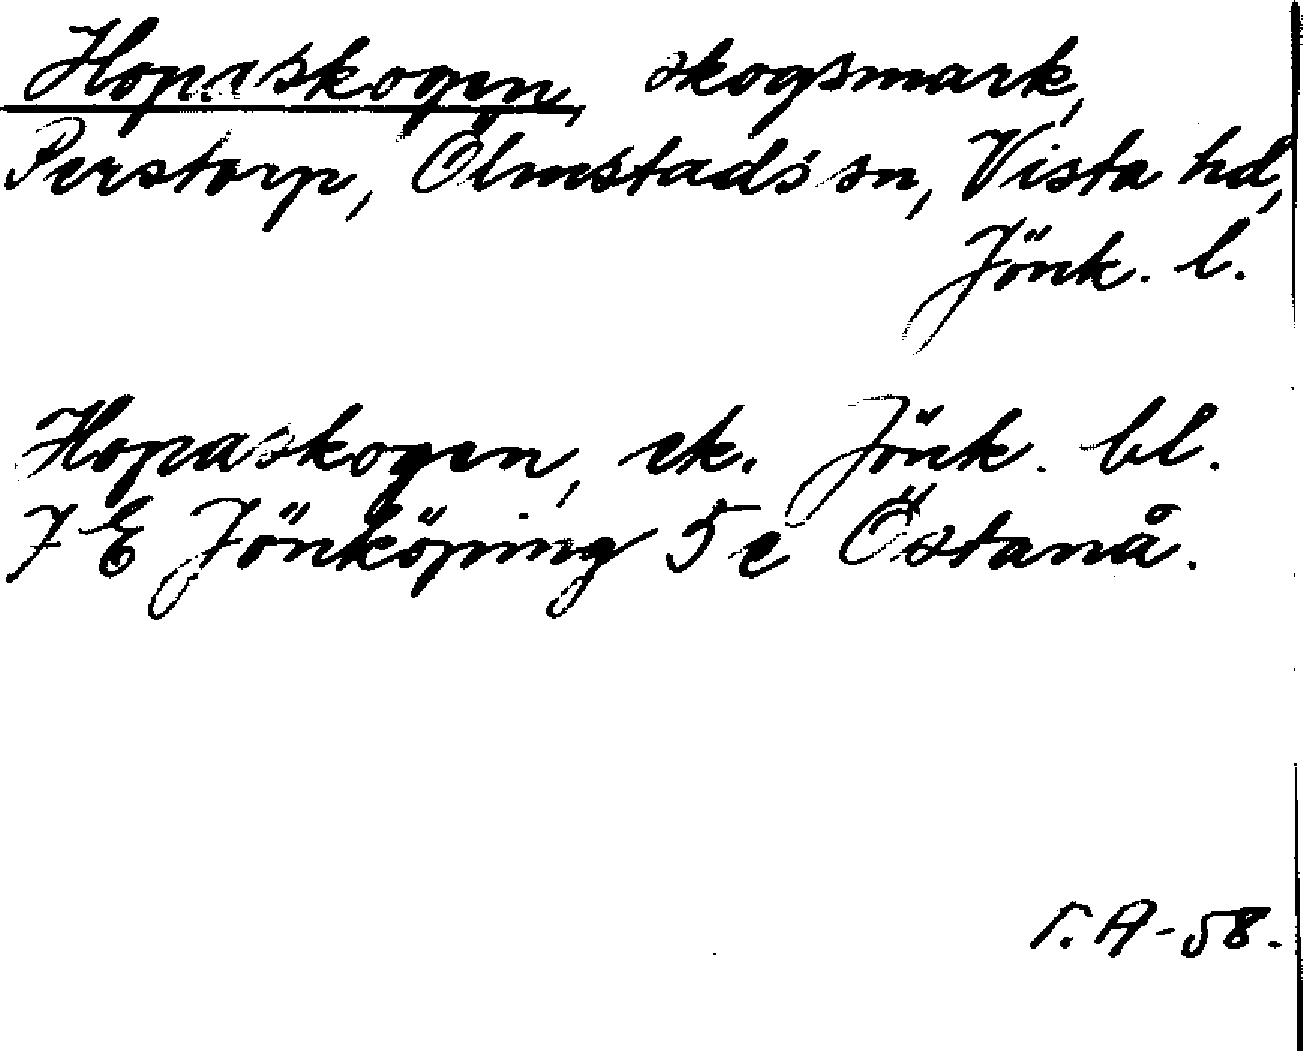 Hopaskogen, skogsmark,
Perstorp, Ölmstads sn, Vista hd,
Jönk. l.
Hopaskogen, ek. Jönk. bl.
7 E Jönköping 5 e Östanå.
T. A - 58.